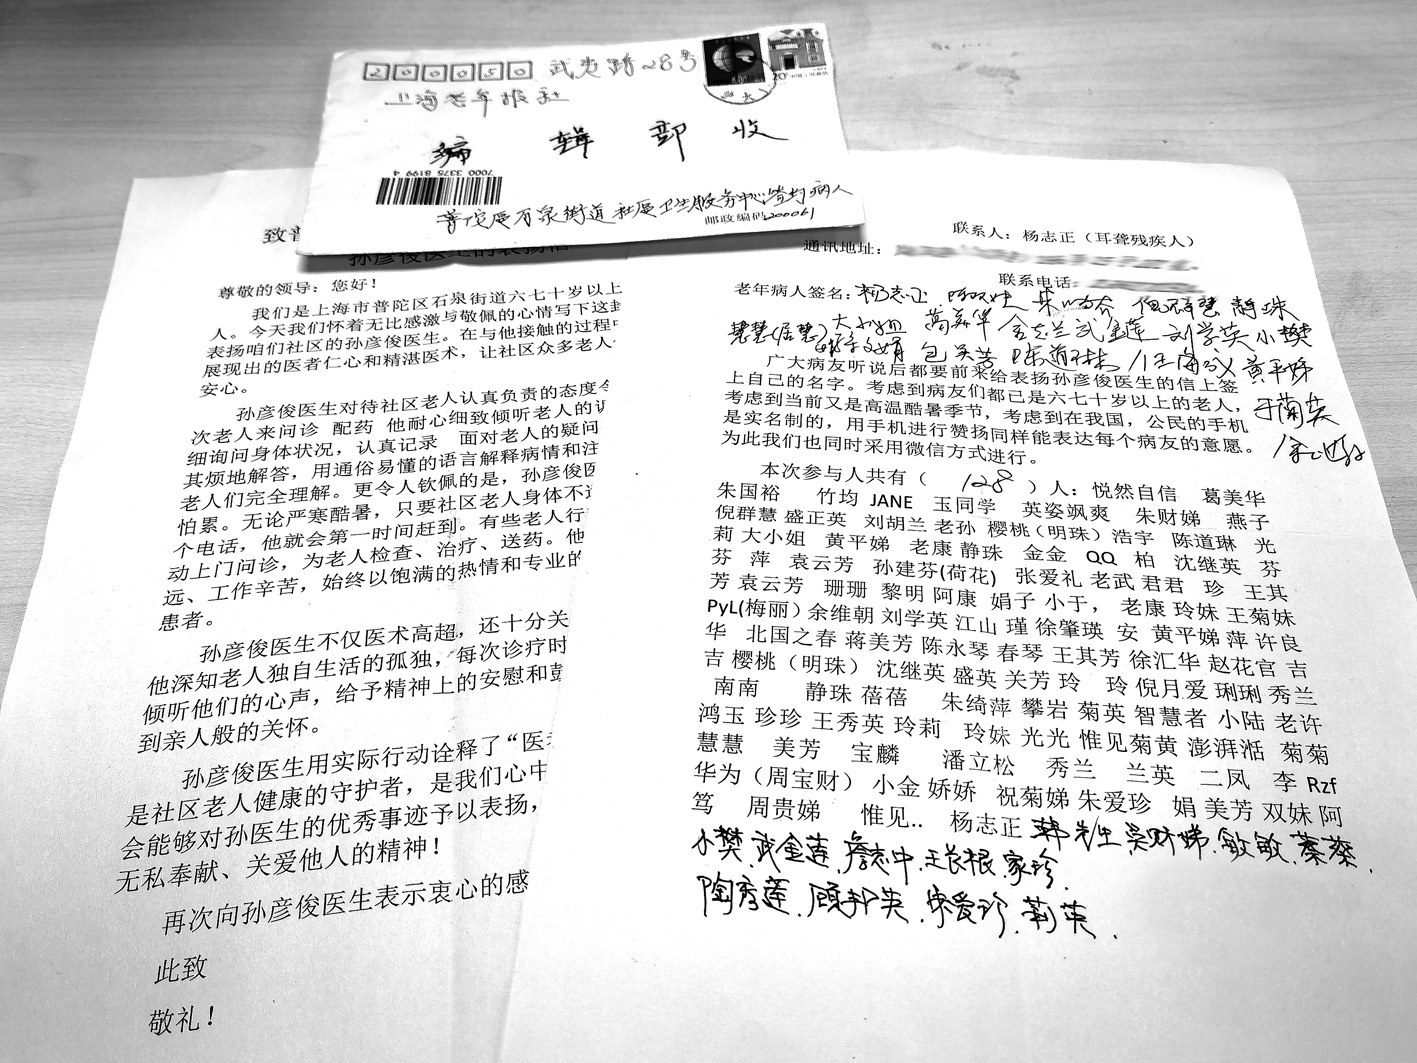 200050 武夷路28号
上海老年报社
编辑部收
7000 3375 8199 4
普陀区石泉街道社区卫生服务中心签约病人
邮政编码200061
致普
孙彦俊医生的表扬信
尊敬的领导：您好！
我们是上海市普陀区石泉街道六七十岁以上
人。今天我们怀着无比感激与敬佩的心情写下这封
表扬咱们社区的孙彦俊医生。在与他接触的过程中
展现出的医者仁心和精湛医术，让社区众多老人
安心。
孙彦俊医生对待社区老人认真负责的态度令
次老人来问诊 配药 他耐心细致倾听老人的诉
细询问身体状况，认真记录 面对老人的疑问
其烦地解答，用通俗易懂的语言解释病情和注
老人们完全理解。更令人钦佩的是，孙彦俊医
怕累。无论严寒酷暑，只要社区老人身体不适
个电话，他就会第一时间赶到。有些老人行
动上门问诊，为老人检查、治疗、送药。他
远、工作辛苦，始终以饱满的热情和专业的
患者。
孙彦俊医生不仅医术高超，还十分关
他深知老人独自生活的孤独，每次诊疗时
倾听他们的心声，给予精神上的安慰和鼓
到亲人般的关怀。
孙彦俊医生用实际行动诠释了“医者
是社区老人健康的守护者，是我们心中
会能够对孙医生的优秀事迹予以表扬，
无私奉献、关爱他人的精神！
再次向孙彦俊医生表示衷心的感
此致
敬礼！
联系人：杨志正（耳聋残疾人）
通讯地址：
联系电话
老年病人签名：杨志正 倪群慧 静珠
慧慧 大小姐 葛美华 金志兰 武金莲 刘学英 小樊
包吴芳 陈道林 汪海成 黄平娣
广大病友听说后都要前来给表扬孙彦俊医生的信上签
上自己的名字。考虑到病友们都已是六七十岁以上的老人，
于菊英
考虑到当前又是高温酷暑季节，考虑到在我国，公民的手机
是实名制的，用手机进行赞扬同样能表达每个病友的意愿。
为此我们也同时采用微信方式进行。
本次参与人共有（ 128 ）人：悦然自信 葛美华
朱国裕 竹均 JANE 玉同学 英姿飒爽 朱财娣 燕子
倪群慧 盛正英 刘胡兰 老孙 樱桃（明珠）浩宇 陈道琳 光
莉 大小姐 黄平娣 老康 静珠 金金 QQ 柏 沈继英 芬
芬 萍 袁云芳 孙建芬(荷花) 张爱礼 老武 君君 珍 王其
芳 袁云芳 珊珊 黎明 阿康 娟子 小于， 老康 玲妹 王菊妹
PyL(梅丽) 余维朝 刘学英 江山 瑾 徐肇瑛 安 黄平娣 萍 许良
华 北国之春 蒋美芳 陈永琴 春琴 王其芳 徐汇华 赵花官 吉
吉 樱桃（明珠） 沈继英 盛英 关芳 玲 玲 倪月爱 琍琍 秀兰
南南 静珠 蓓蓓 朱绮萍 攀岩 菊英 智慧者 小陆 老许
鸿玉 珍珍 王秀英 玲莉 玲妹 光光 惟见菊黄 澎湃湉 菊菊
慧慧 美芳 宝麟 潘立松 秀兰 兰英 二凤 李 Rzf
华为（周宝财） 小金 娇娇 祝菊娣 朱爱珍 娟 美芳 双妹 阿
笃 周贵娣 惟见.. 杨志正 韩先生 吴财娣、敏敏、蓁蓁、
小樊、武金莲、詹志中、王长根、家珍、
陶秀莲、顾邦英、宋爱珍、莉英、